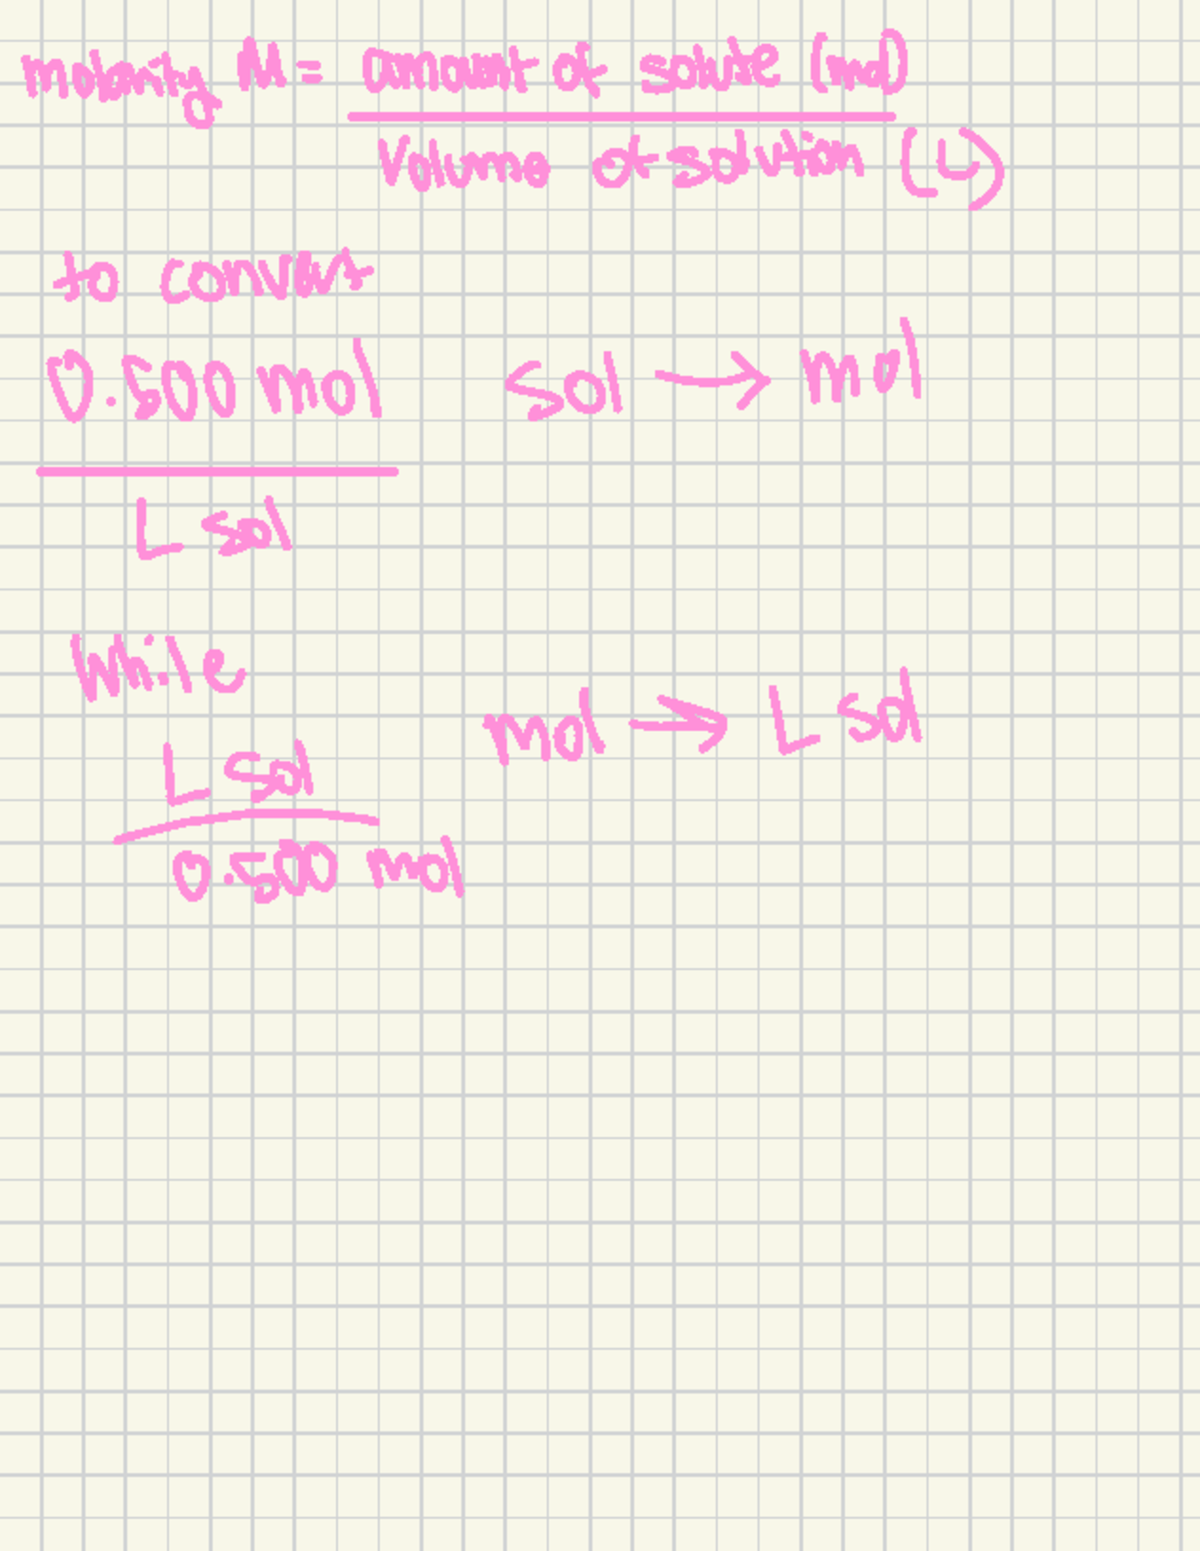 molarity M = amount of solute (mol)
Volume of solution (L)
to convert
0.500 mol sol → mol
L sol
While
mol → L sol
L sol
0.500 mol